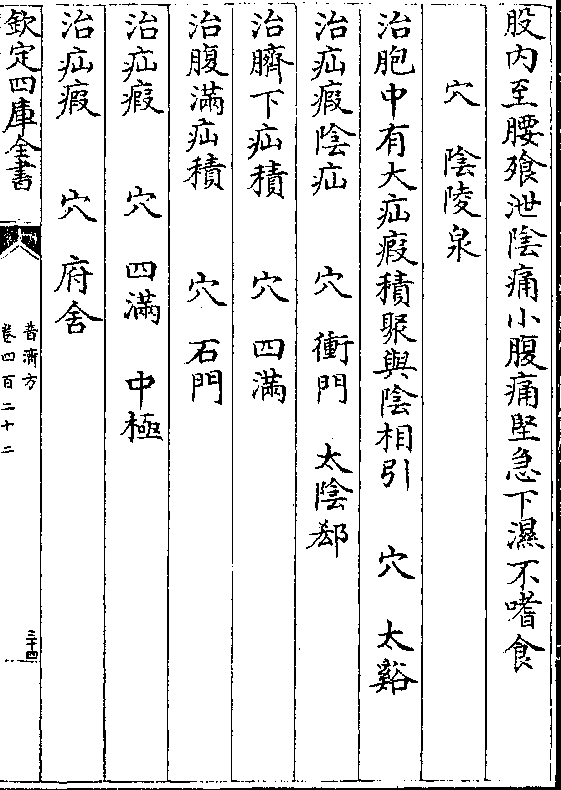 股内至腰飱泄陰痛小腹痛堅急下濕不嗜食
穴 陰陵泉
治胞中有大疝瘕積聚與陰相引 穴 太谿
治疝瘕陰疝 穴 衝門 太陰郄
治臍下疝積 穴 四滿
治腹滿疝積 穴 石門
治疝瘕 穴 四滿 中極
治疝瘕 穴 府舍
欽定四庫全書
普濟方
卷四百二十二
三十四